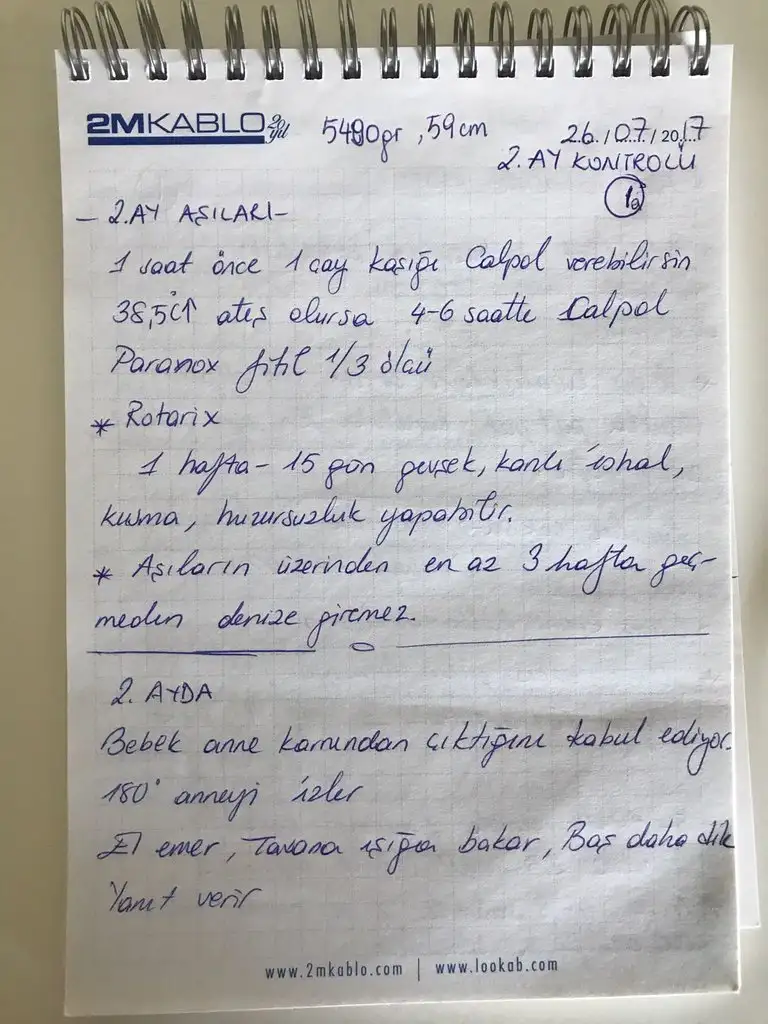 2MKABLO 20 yıl 5490gr, 59cm 26/07/2017
2. AY KONTROLÜ
1a
- 2. AY AŞILARI -
1 saat önce 1 çay kaşığı Calpol verebilirsin
38,5°C↑ ateş olursa 4-6 saatte Calpol
Paranox fitil 1/3 ölçü
* Rotarix
1 hafta - 15 gün gevşek, kanlı ishal,
kusma, huzursuzluk yapabilir.
* Aşıların üzerinden en az 3 hafta geç-
meden denize giremez.
2. AYDA
Bebek anne karnından çıktığını kabul ediyor.
180° anneyi izler
El emer, Tavana ışığa bakar, Baş daha dik
Yanıt verir
www.2mkablo.com | www.lookab.com